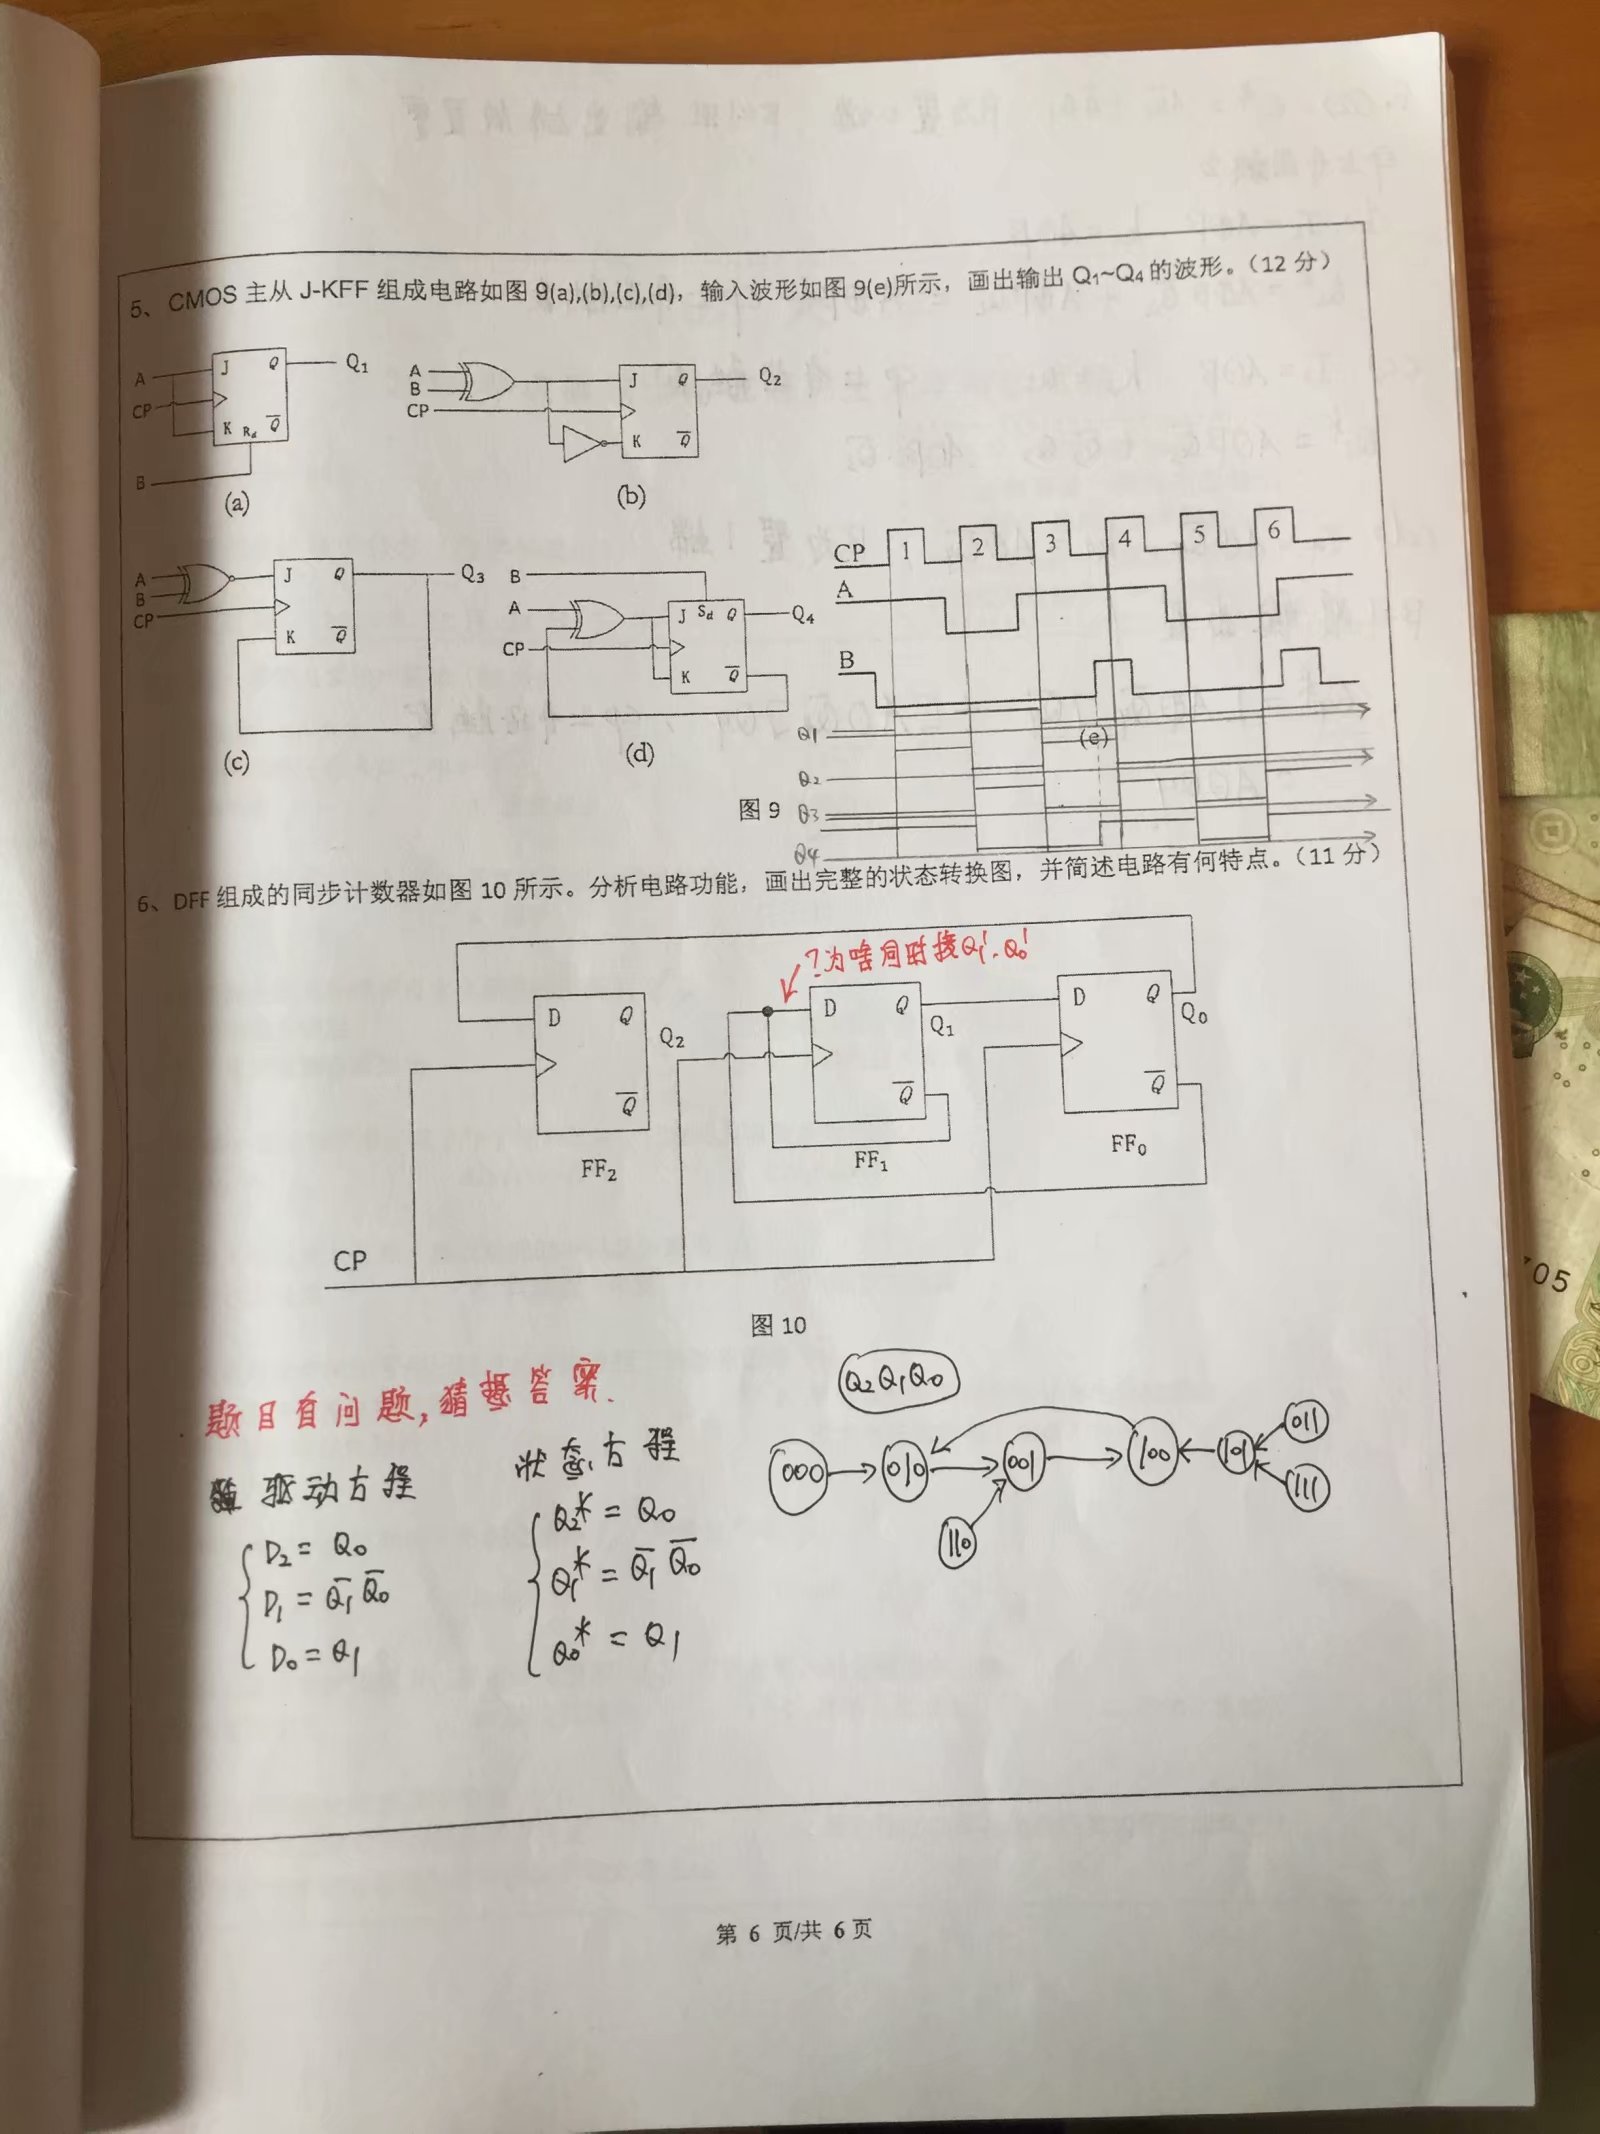 5、CMOS 主从 J-KFF 组成电路如图 9(a),(b),(c),(d)，输入波形如图 9(e)所示，画出输出 Q₁~Q₄ 的波形。（12 分）
A CP B J Q K R_d Q̅ Q₁
(a)
A B CP J Q K Q̅ Q₂
(b)
A B CP J Q K Q̅ Q₃
(c)
B A CP J S_d Q K Q̅ Q₄
(d)
CP 1 2 3 4 5 6
A
B
Q1
(e)
Q2
图 9
Q3
Q4
6、DFF 组成的同步计数器如图 10 所示。分析电路功能，画出完整的状态转换图，并简述电路有何特点。（11 分）
?为啥同时接Q₁'.Q₀'
D Q Q̅ Q₂ FF₂
D Q Q̅ Q₁ FF₁
D Q Q̅ Q₀ FF₀
CP
图 10
题目有问题,猜想答案.
驱动方程
D₂ = Q₀
D₁ = Q̅₁ Q̅₀
D₀ = Q₁
状态方程
Q₂* = Q₀
Q₁* = Q̅₁ Q̅₀
Q₀* = Q₁
Q₂Q₁Q₀
000 010 001 100 101 011
111
110
第 6 页/共 6 页
05